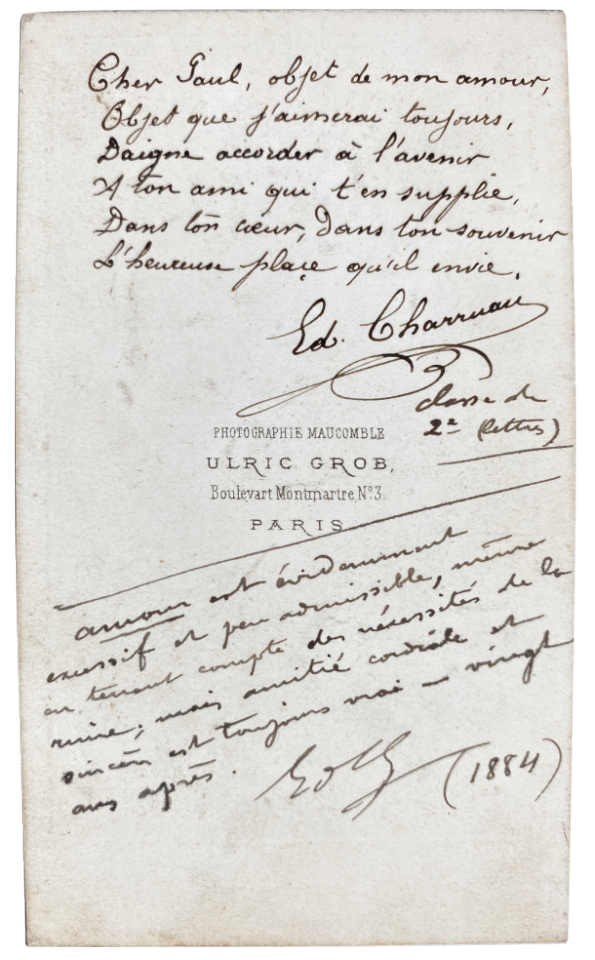 Cher Paul, objet de mon amour,
Objet que j'aimerai toujours,
Daigne accorder à l'avenir
A ton ami qui t'en supplie,
Dans ton cœur, dans ton souvenir
L'heureuse place qu'il envie.
Ed. Charruau
classe de
2e (lettres)
PHOTOGRAPHIE MAUCOMBLE
ULRIC GROB,
Boulevart Montmartre, No. 3.
PARIS
amour est évidemment
excessif et peu admissible, même
en tenant compte des nécessités de la
rime; mais amitié cordiale et
sincère est toujours vrai - vingt
ans après.
(1884)